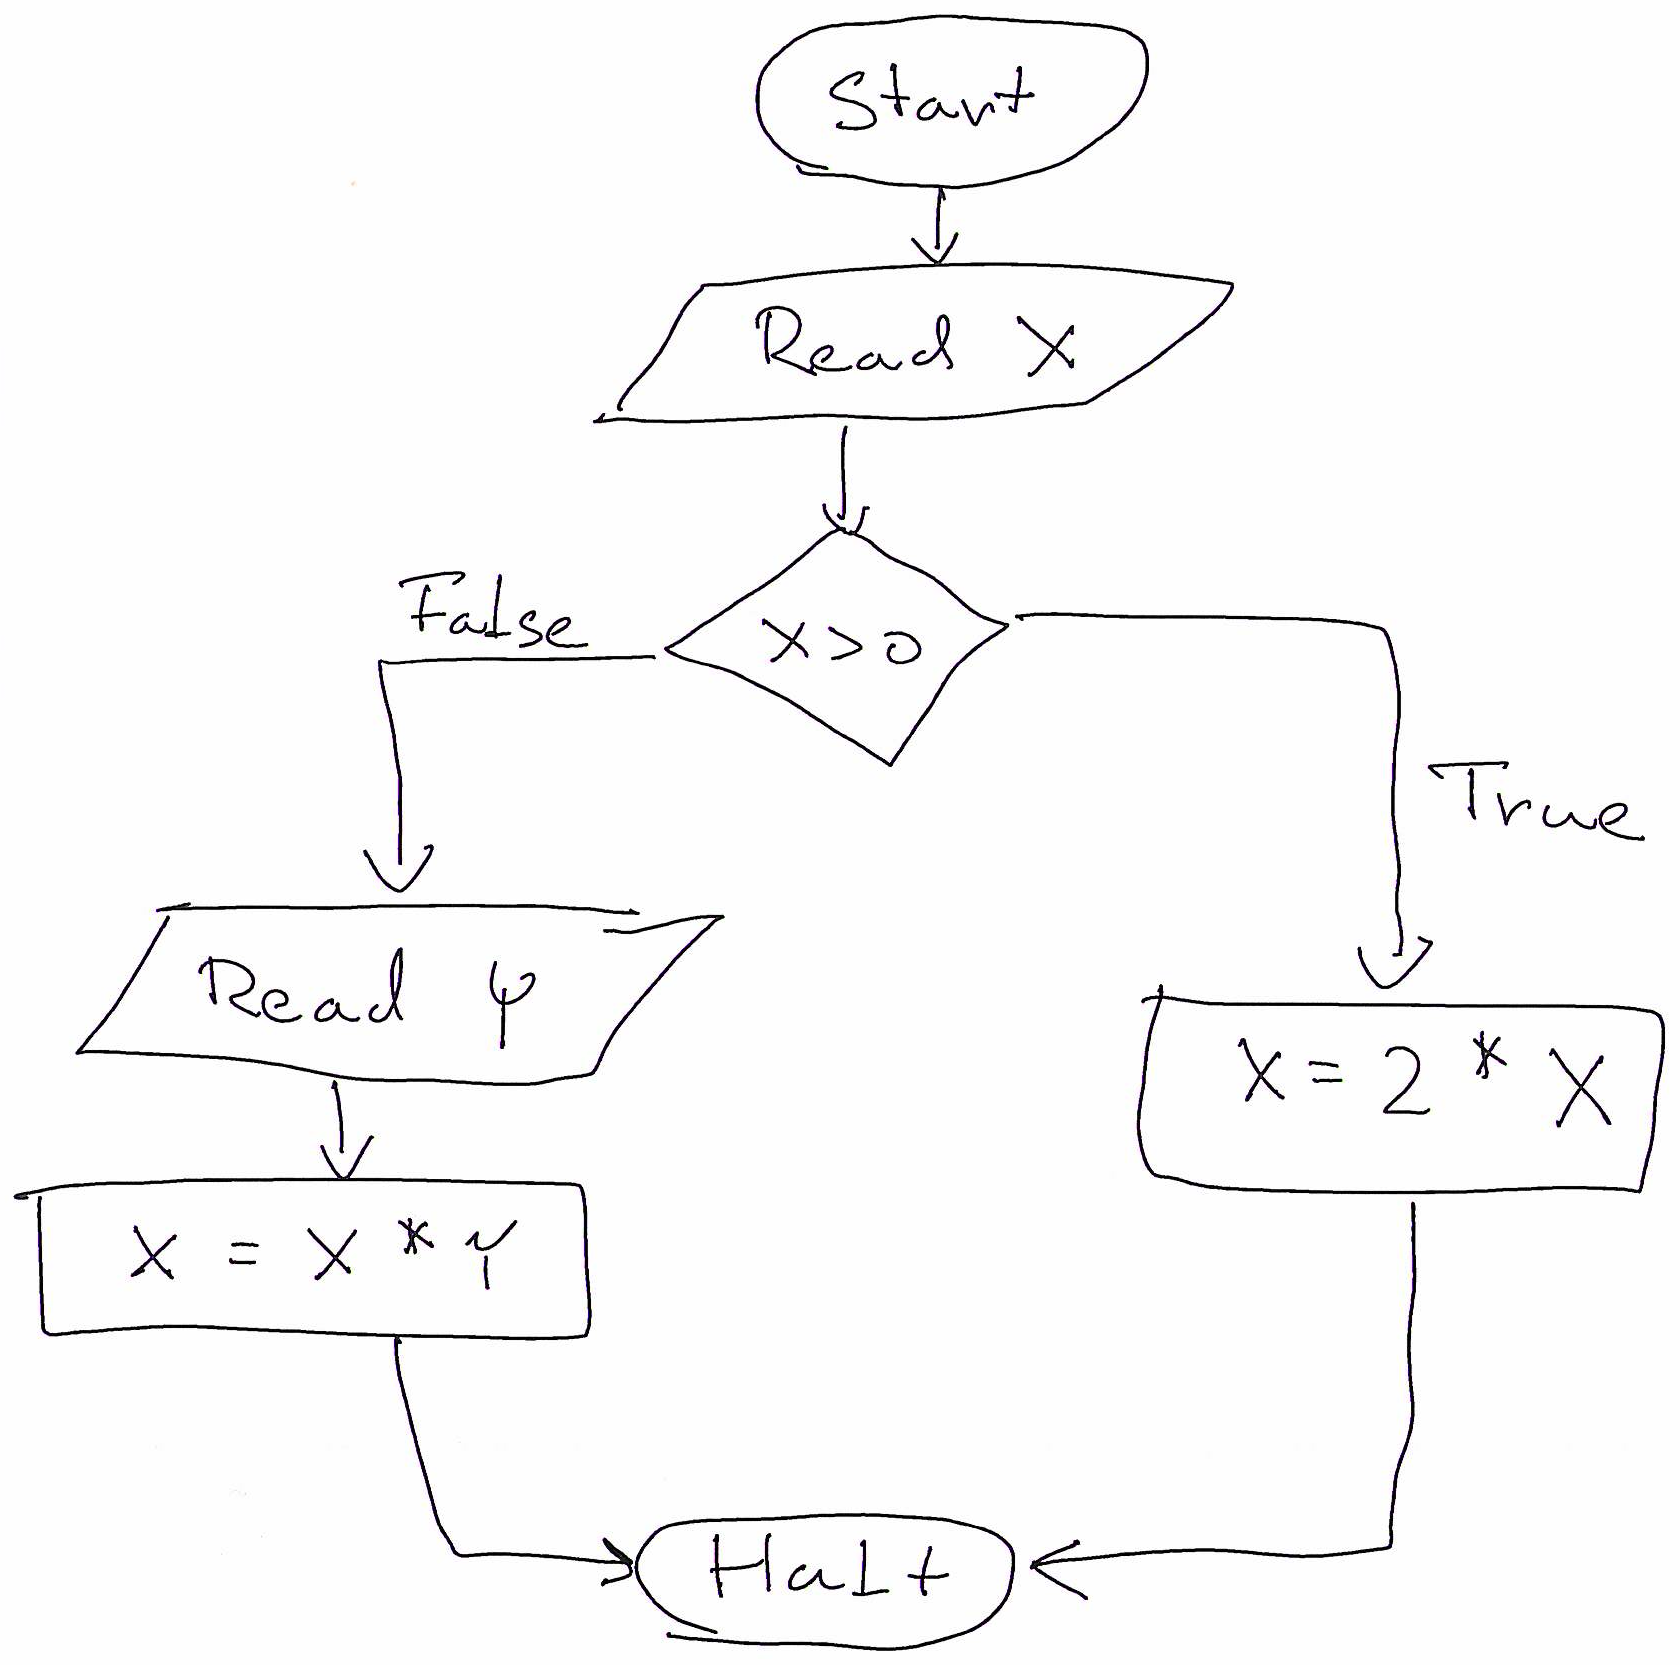 Start
Read X
X>0
False
True
Read Y
X = 2 * X
X = X * Y
Halt